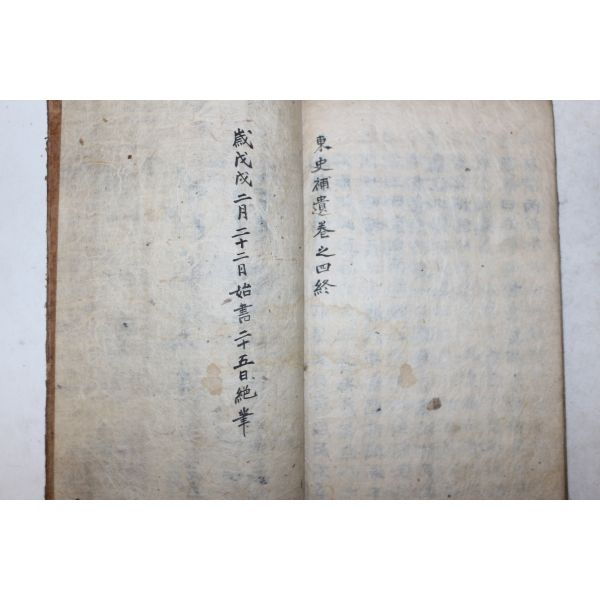 東史補遺卷之四終
歲戊戌二月二十二日始書二十五日絶筆